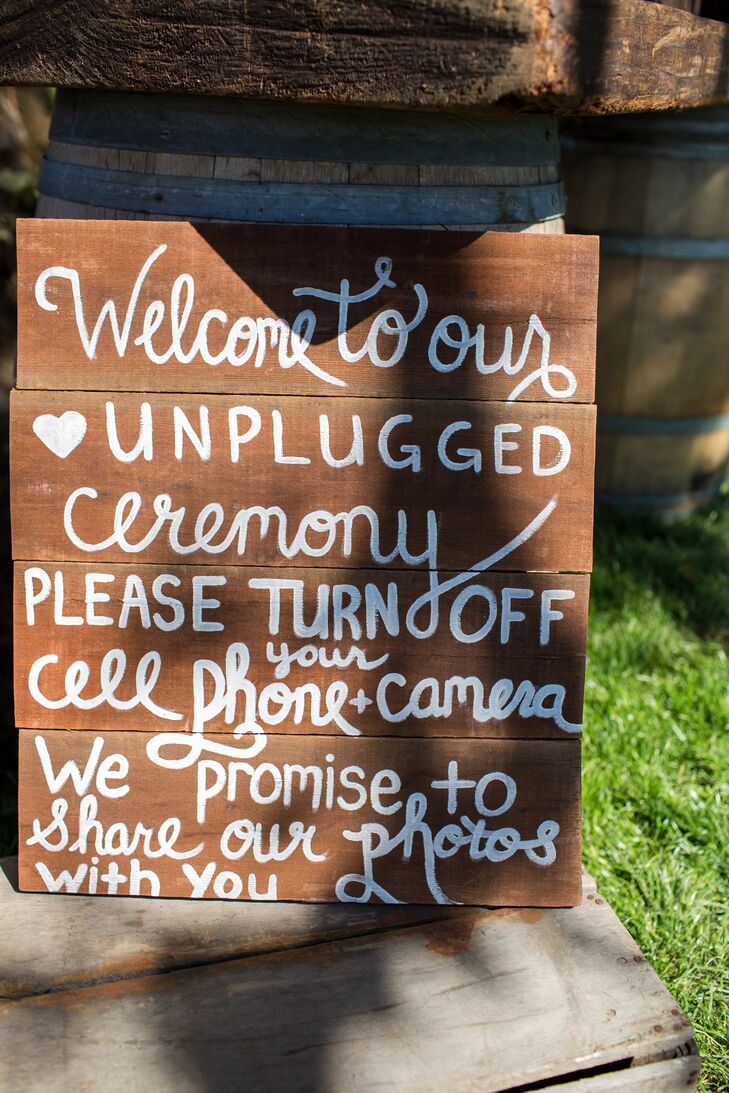 Welcome to our
UNPLUGGED
Ceremony
PLEASE TURN OFF
your
cell phone + camera
We promise to
share our photos
with you